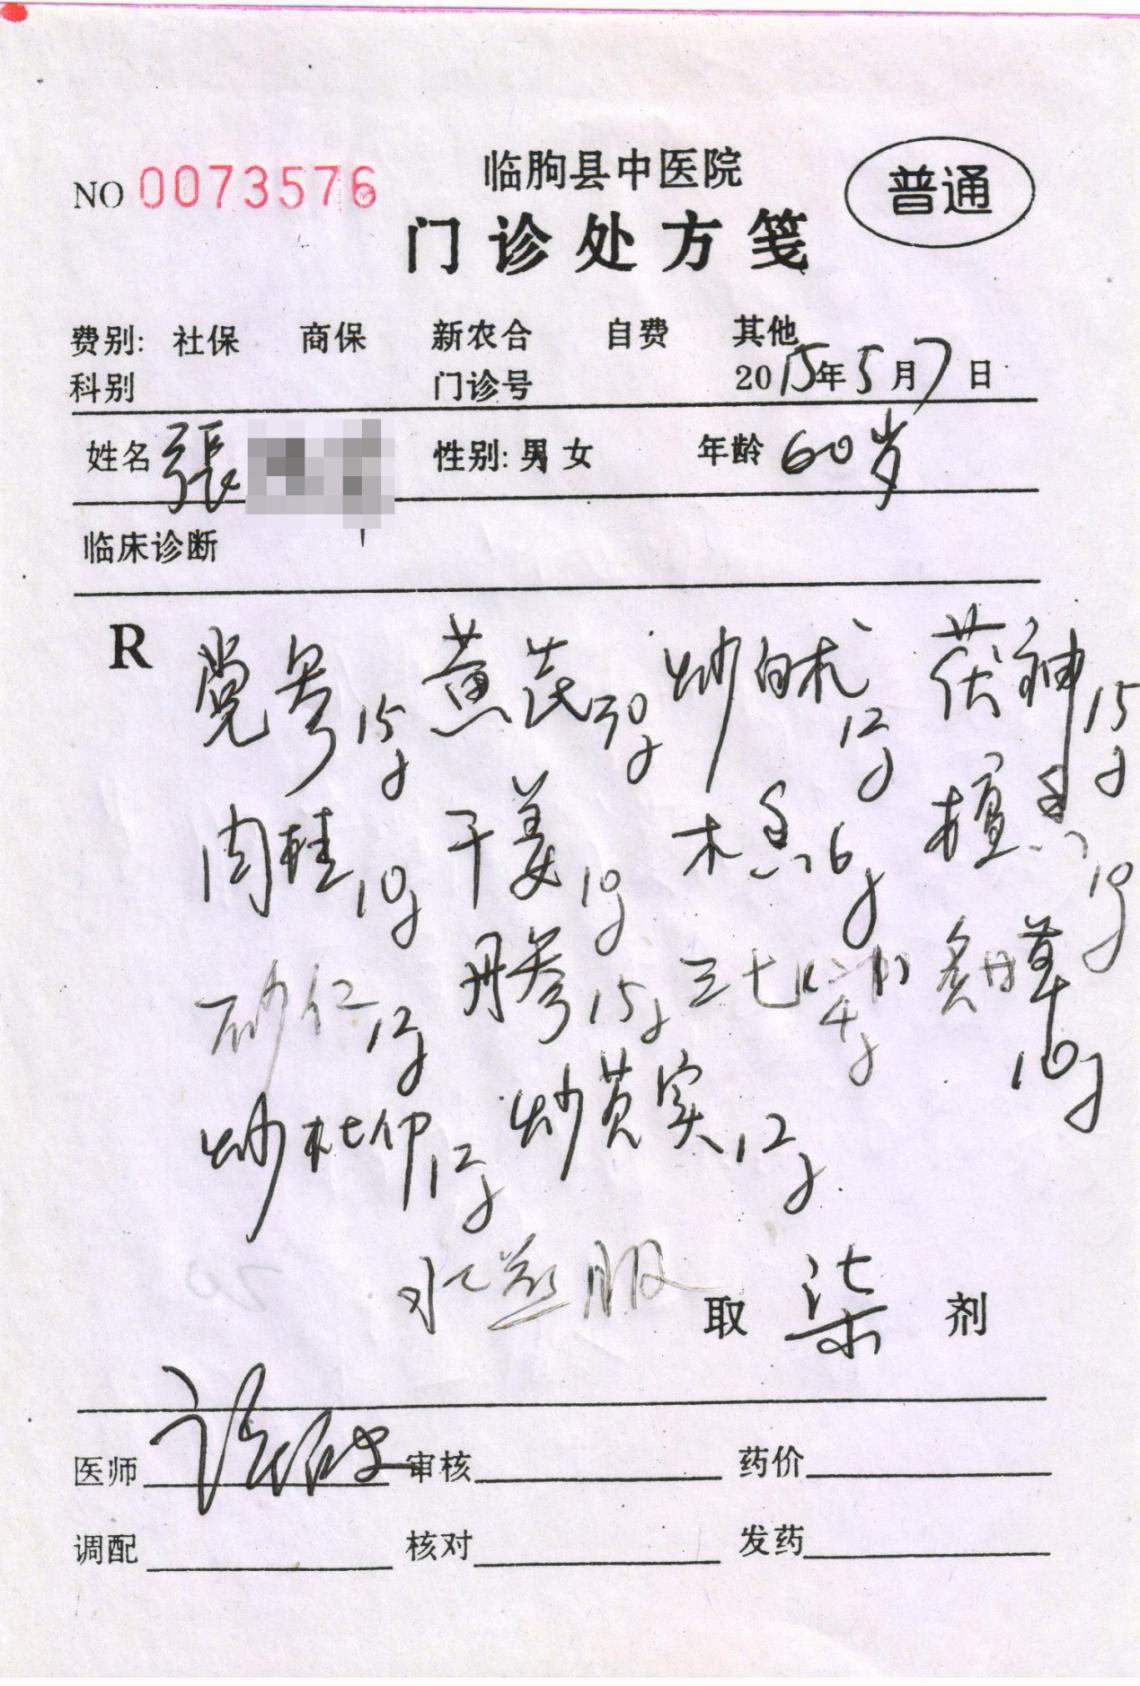 临朐县中医院
NO 0073576
普通
门诊处方笺
费别: 社保 商保 新农合 自费 其他
科别 门诊号 2015年5月7日
姓名 張 性别: 男 女 年龄 60岁
临床诊断
R
党参15g 黄芪30g 炒白术12g 茯神15g
肉桂10g 干姜10g 木香6g 檀香10g
砂仁12g 丹参15g 三七 4g 炙甘草10g
炒杜仲12g 炒芡实12g
水煎服 取 柒 剂
医师 审核 药价
调配 核对 发药